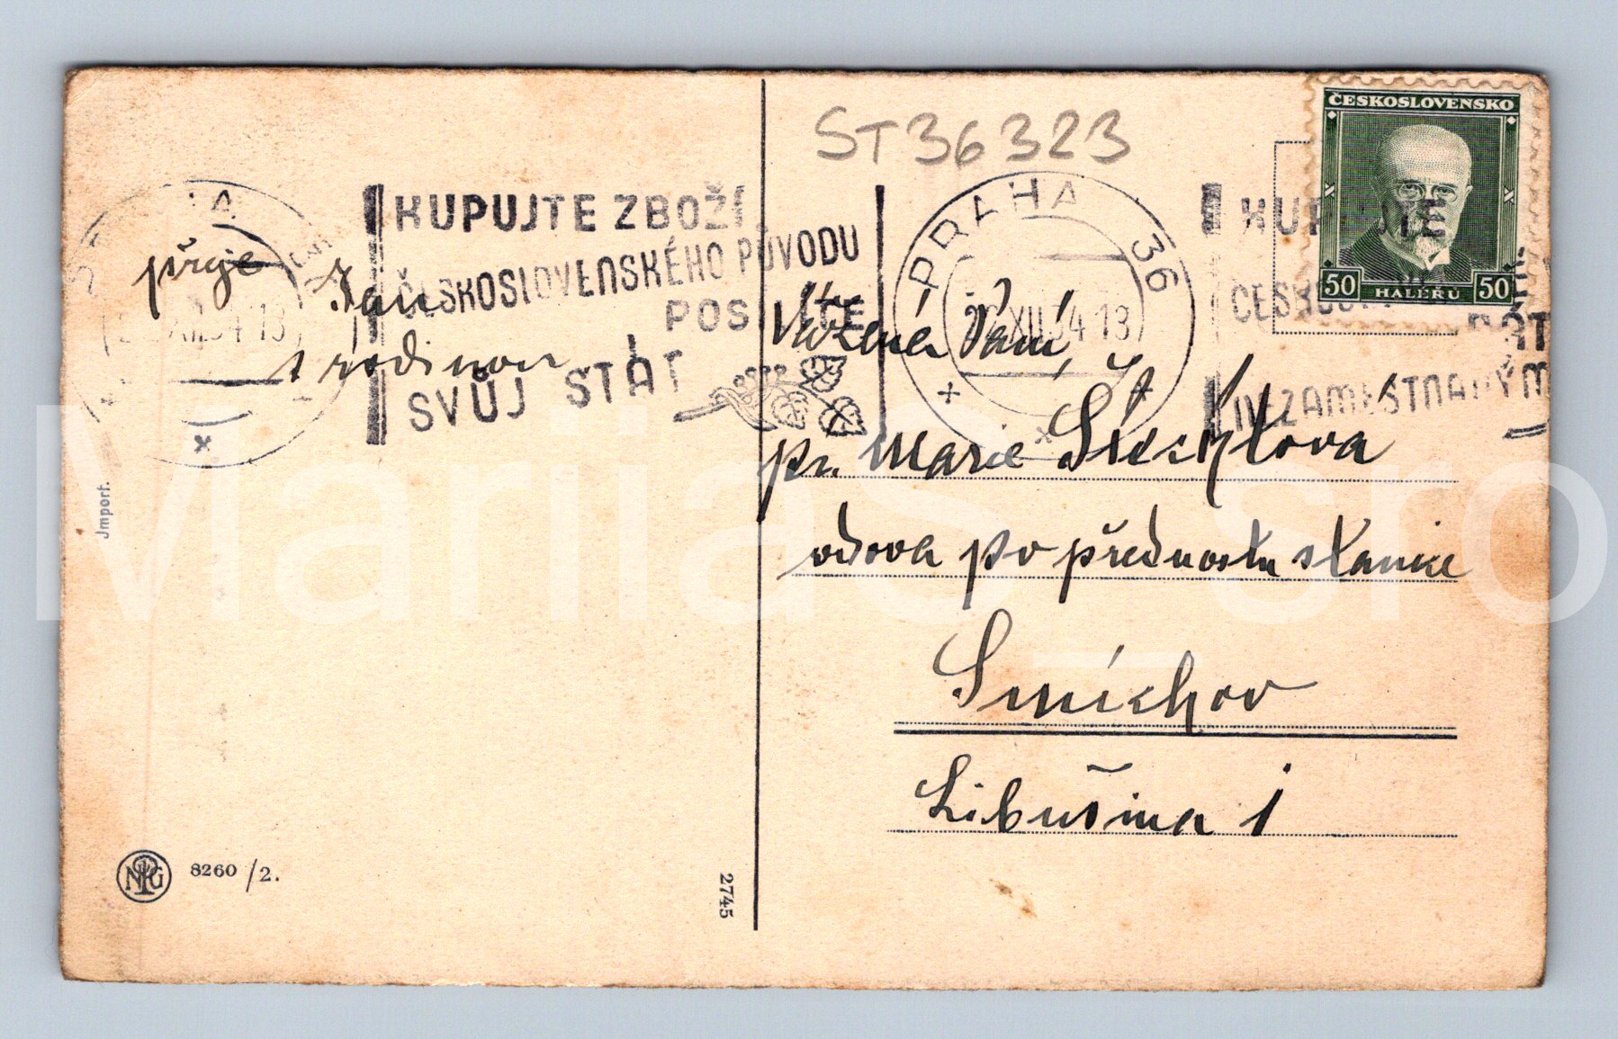 ST36323
ČESKOSLOVENSKO
50 HALÉŘŮ 50
PRAHA 36
XII.34-13
KUPUJTE ZBOŽÍ
ČESKOSLOVENSKÉHO PŮVODU
POSÍLÍTE
SVŮJ STÁT
KUPUJTE
NEZAMĚSTNANÝM
přeje Jan
s rodinou
Vážená Paní,
pí. Marie
vdova po přednostu stanice
Smíchov
Libušina 1
Import.
NPG 8260/2.
2745
Marijas_sro